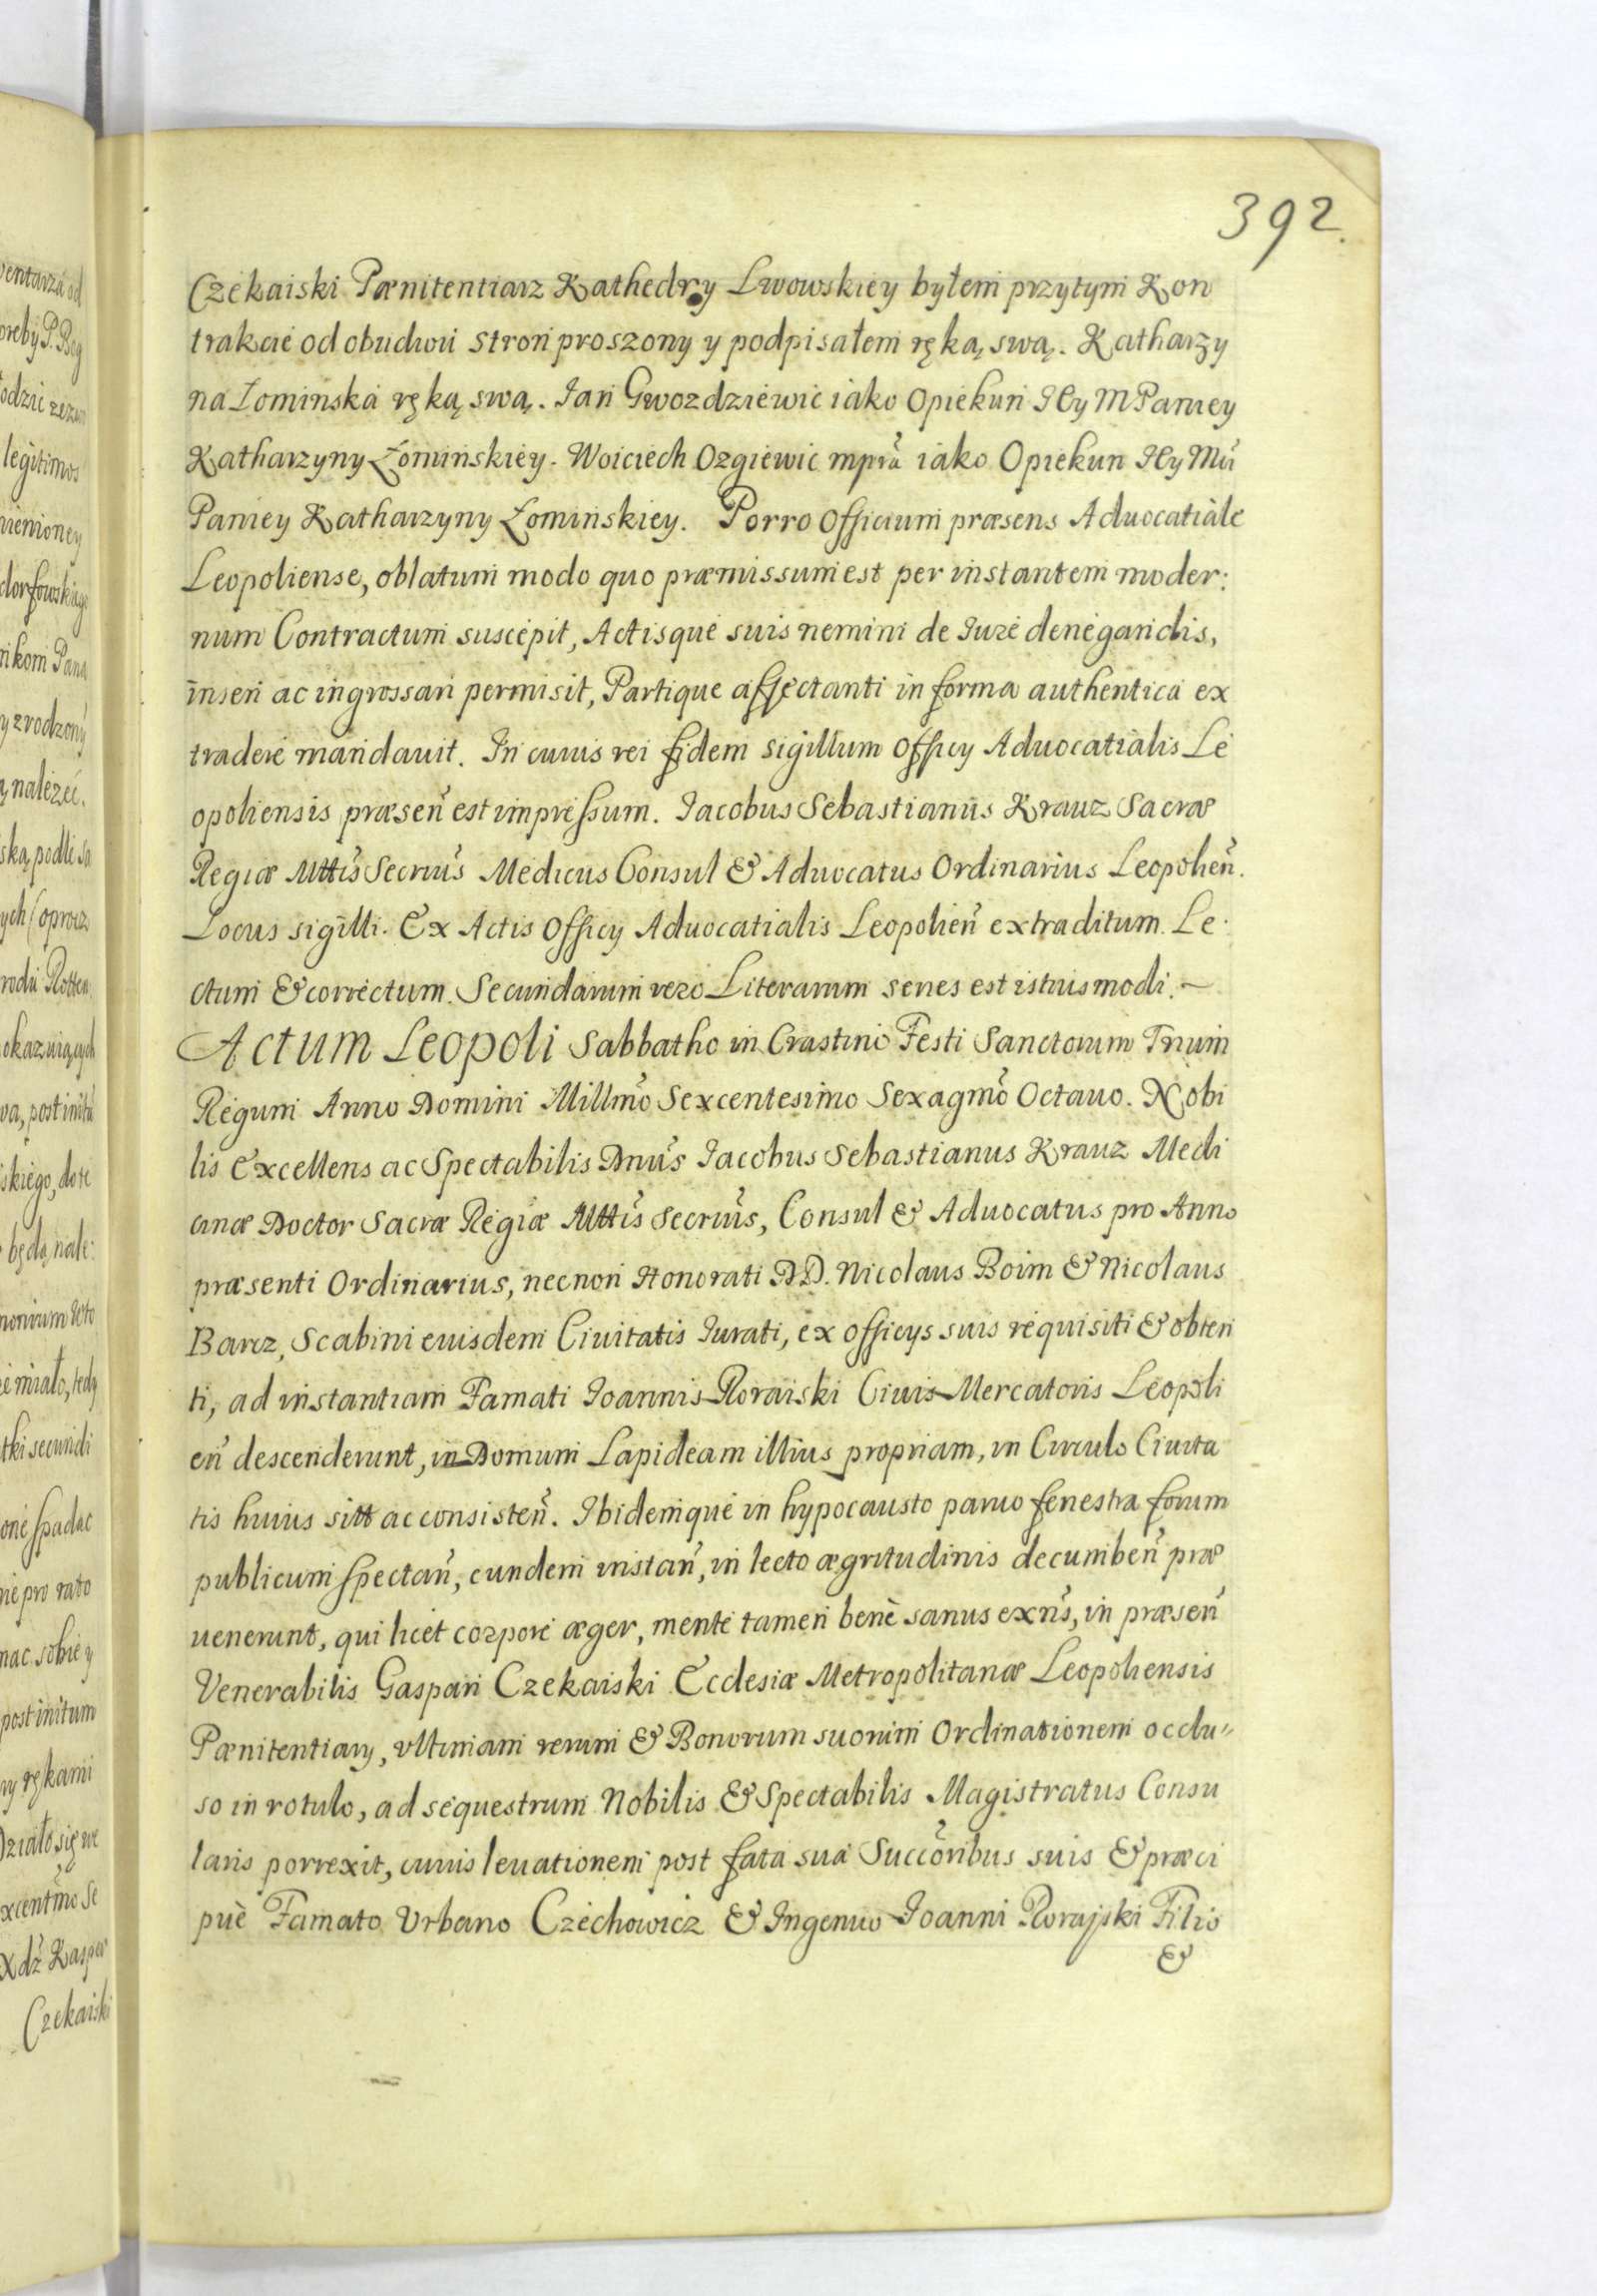 392.
Czekaiski Pænitentiarz Kathedry Lwowskiey byłem przytym Kon
trakcie od obudwu stron proszony y podpisałem ręką swą. Katharzy
na Łominska ręką swą. Jan Gwozdziewic iako Opiekun JEy M Paniey
Katharzyny Łominskiey. Woiciech Ozgiewic mpra iako Opiekun JEy Mu
Paniey Katharzyny Łominskiey. Porro Officium præsens Aduocatiale
Leopoliense, oblatum modo quo præmissum est per instantem moder:
num Contractum suscepit, Actisque suis nemini de Iure denegandis,
inseri ac ingrossari permisit, Partique affectanti in forma authentica ex
tradere mandauit. In cuius rei fidem sigillum officy Aduocatialis Le
opoliensis præsen est impressum. Iacobus Sebastianus Krauz Sacræ
Regiæ Mttis Secrius Medicus Consul & Aduocatus Ordinarius Leopolien.
Locus sigilli. Ex Actis Officy Aduocatialis Leopolien extraditum. Le.
ctum & correctum. Secundarum vero Literarum series est istiusmodi. ~
Actum Leopoli Sabbatho in Crastino Festi Sanctorum Trium
Regum Anno Domini Millmo Sexcentesimo Sexagmo Octauo. Nobi
lis Excellens ac Spectabilis Dnus Iacobus Sebastianus Krauz Medi
cinæ Doctor Sacræ Regiæ Mttis Secrius, Consul & Aduocatus pro Anno
præsenti Ordinarius, necnon Honorati DD. Nicolaus Boim & Nicolaus
Barcz, Scabini eiusdem Ciuitatis Iurati, ex officys suis requisiti & obten
ti, ad instantiam Famati Ioannis Roraiski Ciuis Mercatoris Leopoli
en descenderunt, in Domum Lapideam illius propriam, in Circulo Ciuita
tis huius sitt ac consisten. Ibidemque in hypocausto paruo fenestra forum
publicum spectan, eundem instan, in lecto ægritudinis decumben præ
uenerunt, qui licet corpore æger, mente tamen benè sanus exns, in præsen
Venerabilis Gaspari Czekaiski Ecclesiæ Metropolitanæ Leopoliensis
Pænitentiary, vltimam rerum & Bonorum suorum Ordinationem occlu"
so in rotulo, ad sequestrum Nobilis & Spectabilis Magistratus Consu
laris porrexit, cuius leuationem post fata sua Succoribus suis & præci
puè Famato Vrbano Czechowicz & Ingenuo Ioanni Rorajski Filio
&